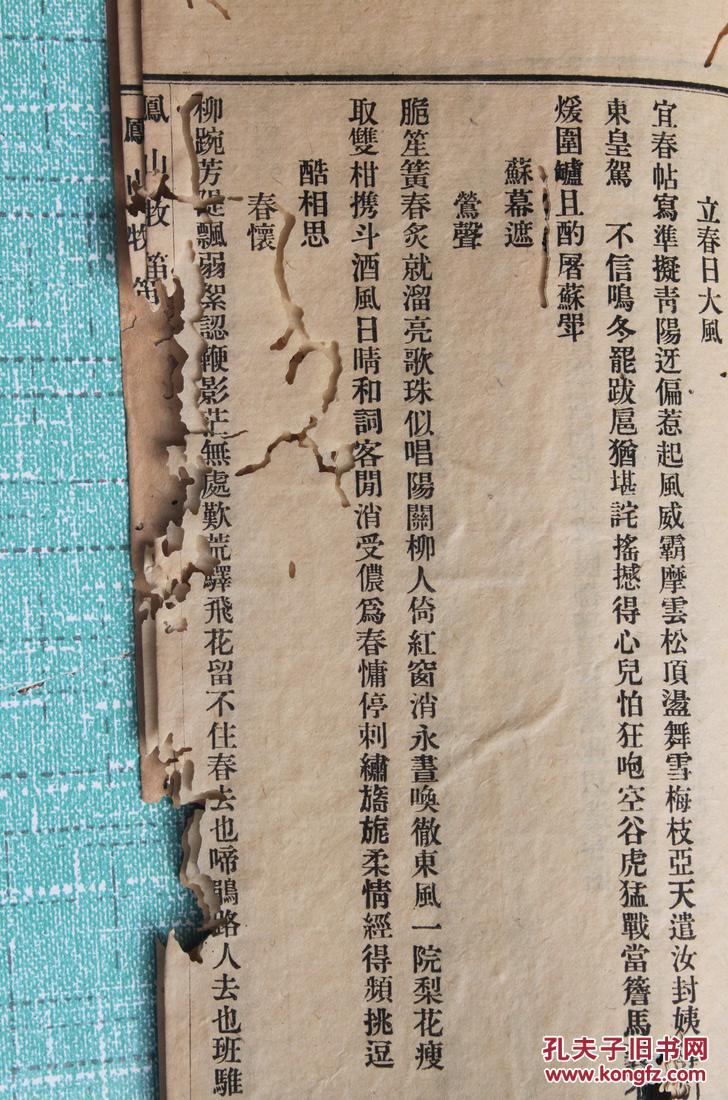 立春日大風
宜春帖寫準擬靑陽迓偏惹起風威霸摩雲松頂盪舞雪梅枝亞天遣汝封姨
東皇駕　不信鳴冬罷跋扈猶堪詫搖撼得心兒怕狂咆空谷虎猛戰當簷馬
煖圍鑪且酌屠蘇斝
蘇幕遮
鶯聲
脆笙簧春炙就溜亮歌珠似唱陽關柳人倚紅窗消永晝喚徹東風一院梨花瘦
取雙柑携斗酒風日晴和詞客閒消受儂爲春慵停刺繡旖旎柔情經得頻挑逗
酷相思
春懷
柳踠芳隄飄弱絮認鞭影茫無處歎荒驛飛花留不住春去也啼鵑路人去也班騅
鳳山牧笛
鳳山牧笛
孔夫子旧书网
www.kongfz.com